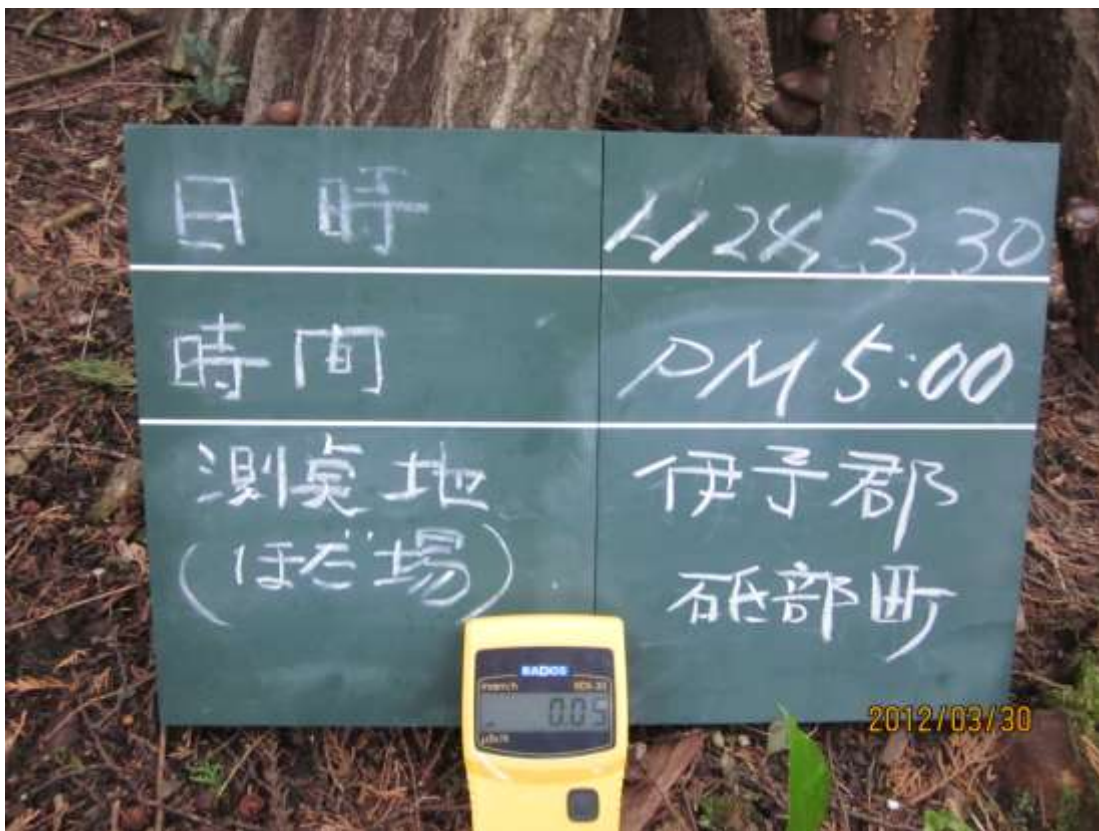 日時 H24.3.30
時間 PM 5:00
測点地 伊予郡
(ほだ場) 砥部町
RADOS
0.05
μSv/h
2012/03/30